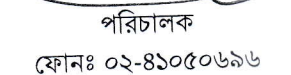 পরিচালক
ফোনঃ ০২-৪১০৫০৬৯৬